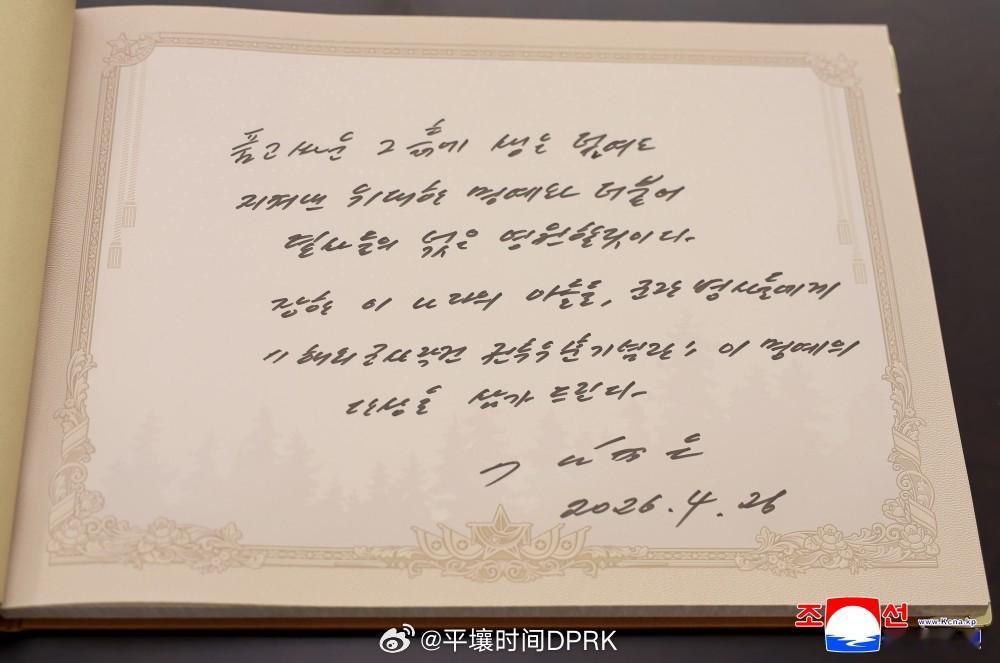 품고 싸운 그 흙에 생은 덮여도
지켜낸 위대한 명예와 더불어
렬사들의 넋은 영원할것이다.
장한 이 나라의 아들들, 군관 병사들에게
《해외군사작전 전투위훈기념관》 이 명예의
단상을 삼가 드린다.
김정은
2026.4.26
조선 www.kcna.kp
@平壤时间DPRK